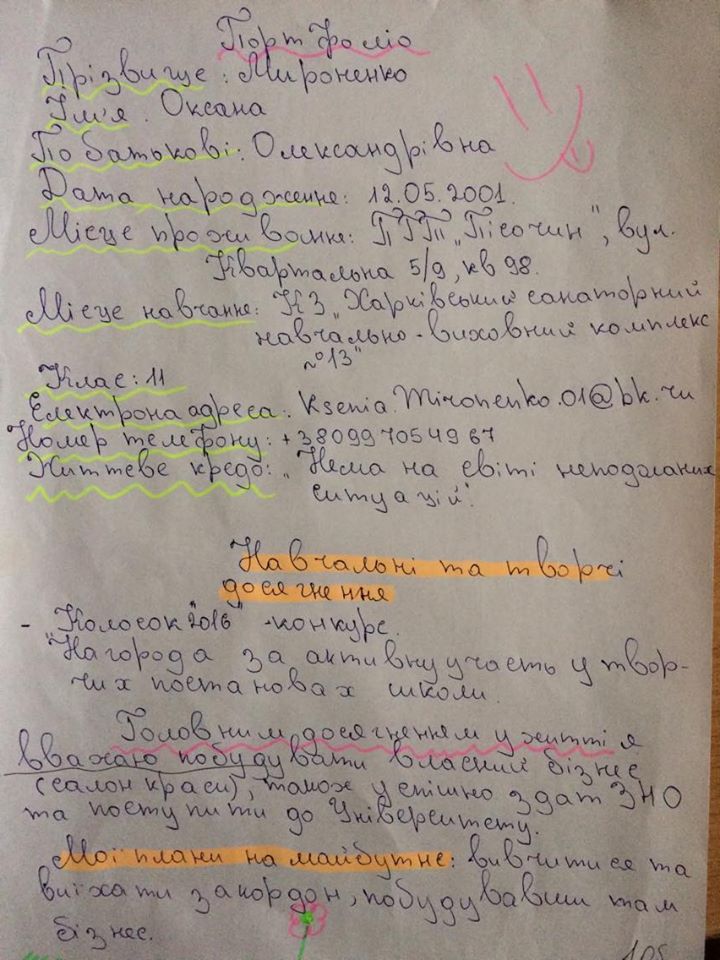 Портфоліо
Прізвище: Мироненко
Ім'я. Оксана
По батькові: Олександрівна
Дата народження: 12.05.2001.
Місце проживання: ПГТ "Пісочин", вул.
Квартальна 5/9, кв 98.
Місце навчання: КЗ "Харківський санаторний
навчально-виховний комплекс
№13"
Клас: 11
Електрона адреса: Ksenia.Mironenko.01@bk.ru
Номер телефону: +380997054967
Життеве кредо: "Нема на світі неподоланих
ситуацій".
Навчальні та творчі
досягнення
- Колосок "2016" -конкурс.
"Нагорода за активну участь у твор-
чих постановах школи.
Головним досягненням у житті я
вважаю побудувати власний бізнес
(салон краси), також успішно здат ЗНО
та поступити до Університету.
Мої плани на майбутне: вивчитися та
виїхати закордон, побудувавши там
бізнес.